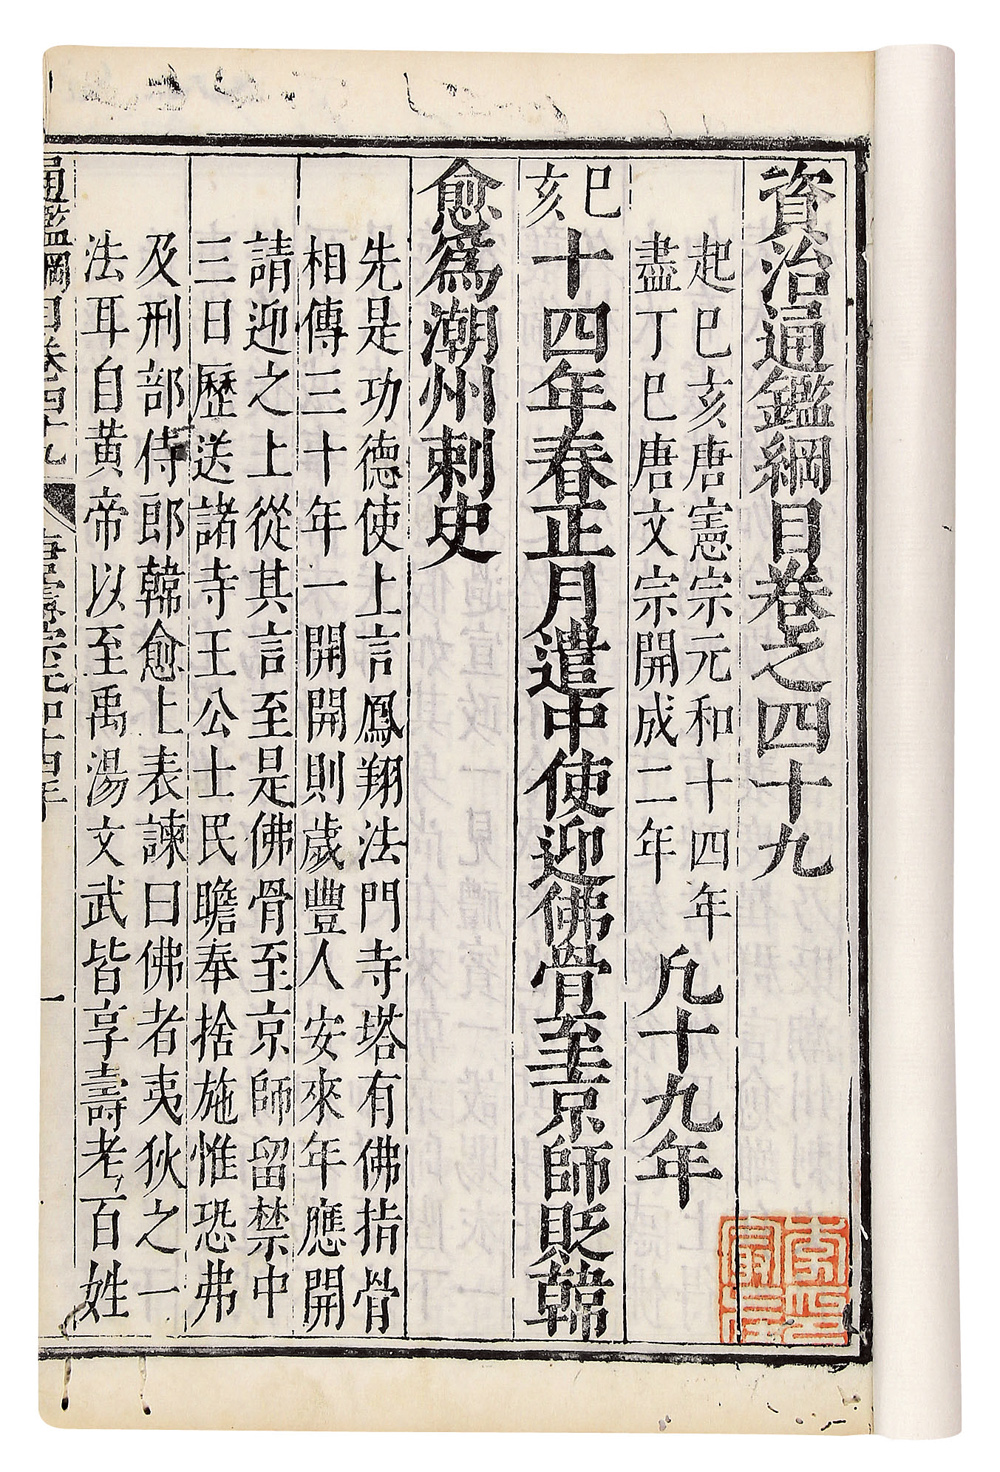 資治通鑑綱目卷之四十九
起己亥唐憲宗元和十四年
盡丁巳唐文宗開成二年
凡十九年
己亥十四年春正月遣中使迎佛骨至京師貶韓
愈爲潮州刺史
先是功德使上言鳳翔法門寺塔有佛指骨
相傳三十年一開開則歲豐人安來年應開
請迎之上從其言至是佛骨至京師留禁中
三日歷送諸寺王公士民瞻奉捨施惟恐弗
及刑部侍郎韓愈上表諫曰佛者夷狄之一
法耳自黃帝以至禹湯文武皆享壽考百姓
通鑑綱目卷四十九
唐憲宗元和十四年
一